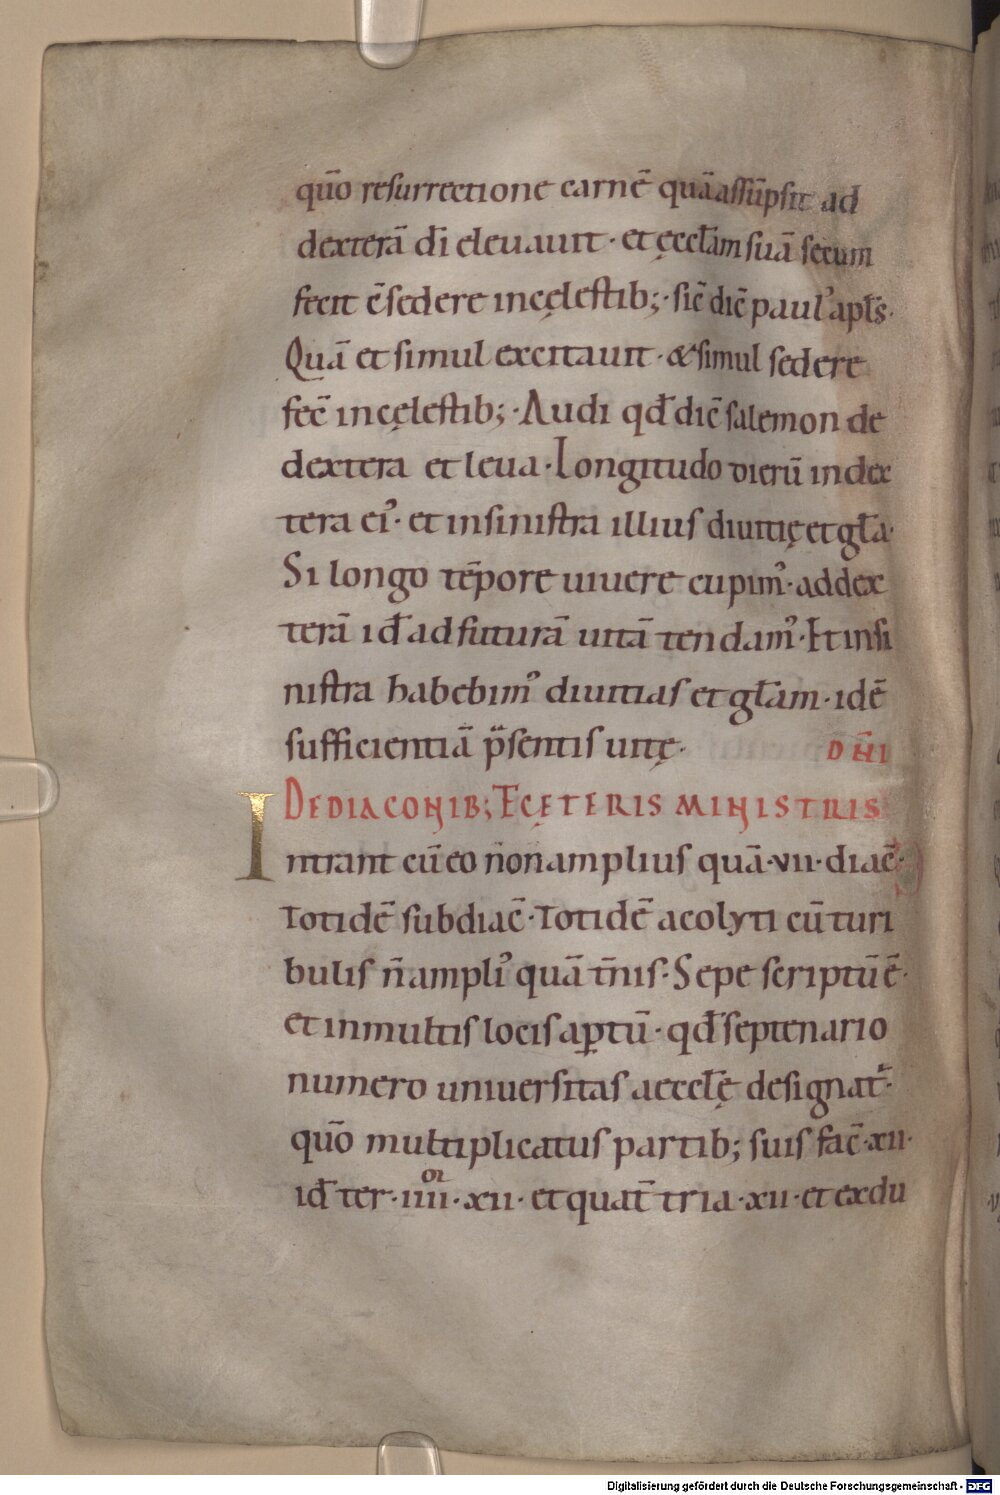 quō resurrectione carnē quā assūpsit ad
dexterā dī eleuauit · et ęccłam suā secum
fecit c̄sedere in cęlestib; · sic̄ dic̄ paul᾽ apłs ·
Quā et simul excitauit · & simul sedere
fec̄ in cęlestib; · Audi qđ dic̄ salemon de
dextera et leua · Longitudo dierū in dex
tera ei᾽ · et in sinistra illius diuitię et gła ·
Si longo tēpore uiuere cupim᾽ · ad dex
terā iđ ad futurā uitā tendam᾽ · Et in si
nistra habebim᾽ diuitias et głam · idē
sufficientiā p̄sentis uitę · DN̄I
DE DIACONIB; ET CĘTERIS MINISTRIS
Intrant cū eo non amplius quā · vii · diac̄ ·
Totidē subdiac̄ · Totidē acolyti cū turi
bulis n̄ ampli᾽ quā t̄nis · Sepe scriptū ē ·
et in multis locis aꝑtū · qđ septenario
numero uniuersitas aecclę̄ designat᷑ ·
quō multiplicatus partib; suis fac̄ · xii ·
iđ ter · iiii or · xii · et quat̄ tria · xii · et ex du
Digitalisierung gefördert durch die Deutsche Forschungsgemeinschaft - DFG